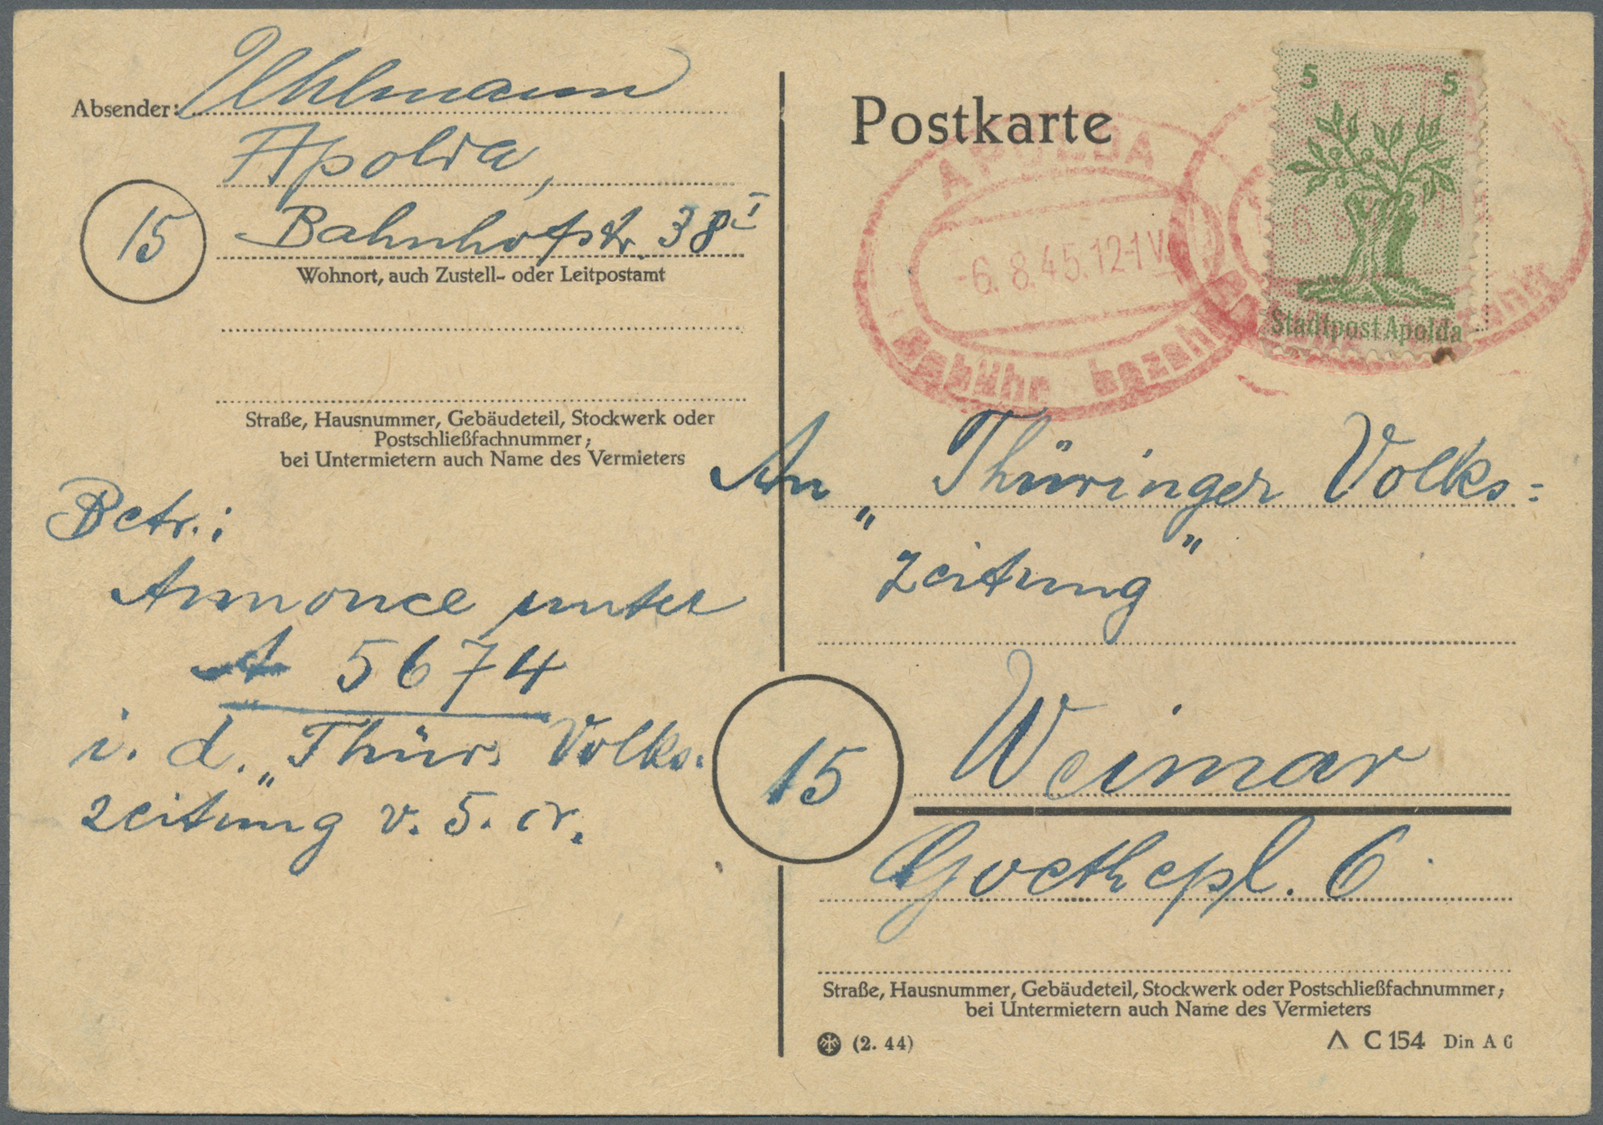 Absender: Uhlmann
Apolda,
15
Bahnhofstr. 38 I
Wohnort, auch Zustell- oder Leitpostamt
Straße, Hausnummer, Gebäudeteil, Stockwerk oder
Postschließfachnummer;
bei Untermietern auch Name des Vermieters
Betr.:
Annonce unter
A 5674
i. d. „Thür. Volks-
zeitung v. 5. cr.
Postkarte
5 5
Stadtpost Apolda
APOLDA
-6.8.45.12-1V
Gebühr bezahlt
An „Thüringer Volks=
zeitung"
15
Weimar
Goethepl. 6
Straße, Hausnummer, Gebäudeteil, Stockwerk oder Postschließfachnummer;
bei Untermietern auch Name des Vermieters
(2. 44)
Λ C 154 Din A 6